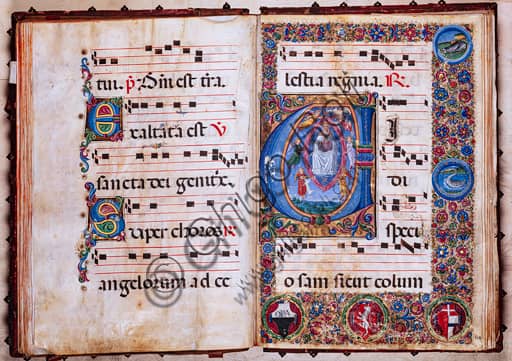 tui. p̄. Qui est tira.
Exaltata est V
sancta dei genitrix.
Super choros R
angelorum ad ce
lestia regna. R.
V
I
DI
speci
osam sicut colum